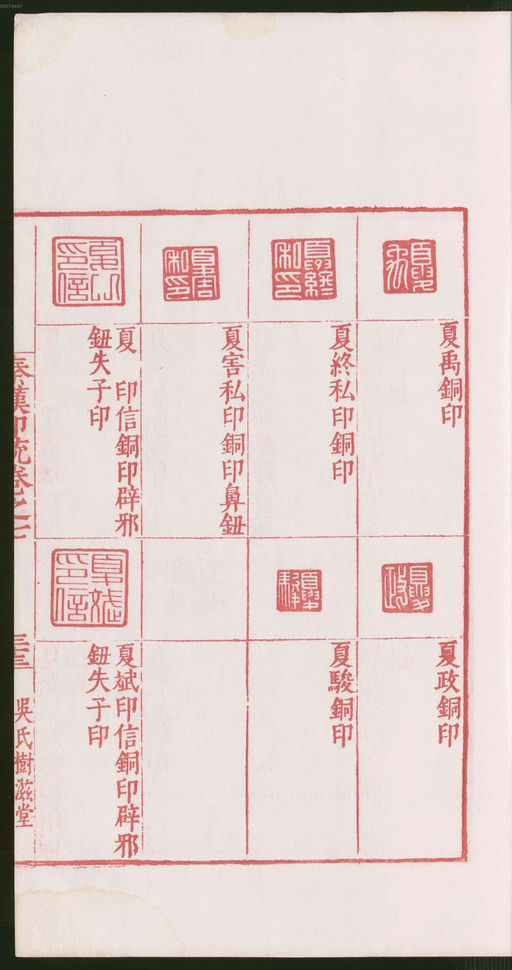 00073467
夏禹銅印
夏終私印銅印
夏害私印銅印鼻鈕
夏 印信銅印辟邪
鈕失子印
夏政銅印
夏駿銅印
夏斌印信銅印辟邪
鈕失子印
秦漢印統卷之七
吳氏樹滋堂